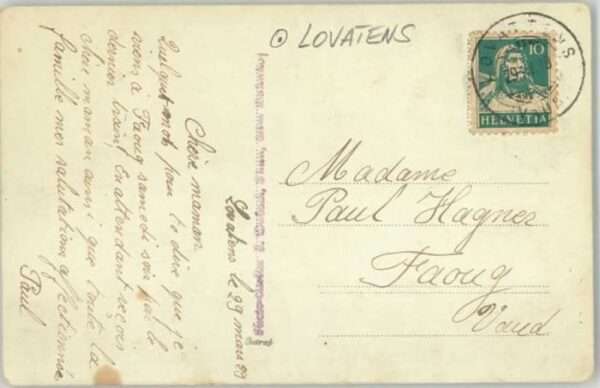 ⊙ LOVATENS
10
HELVETIA
Madame
Paul Hagner
Faoug
Vaud
Lovatens le 29 mars 29
Chère maman
Quelques mots pour te dire que je
viens à Faoug samedi soir par le
dernier train. En attendant reçois
chère maman ainsi que toute la
famille mes salutations affectionnées
Paul